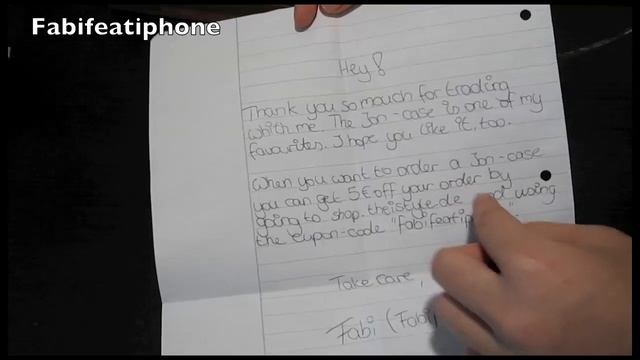 Fabifeatiphone
Hey!
Thank you so mouch for trading
whith me. The Jon-case is one of my
favourites. I hope you like it, too.
When you want to order a Jon-case
you can get 5€ off your order by
going to shop.theistyle.de using
the cupon-code
Take care,
Fabi